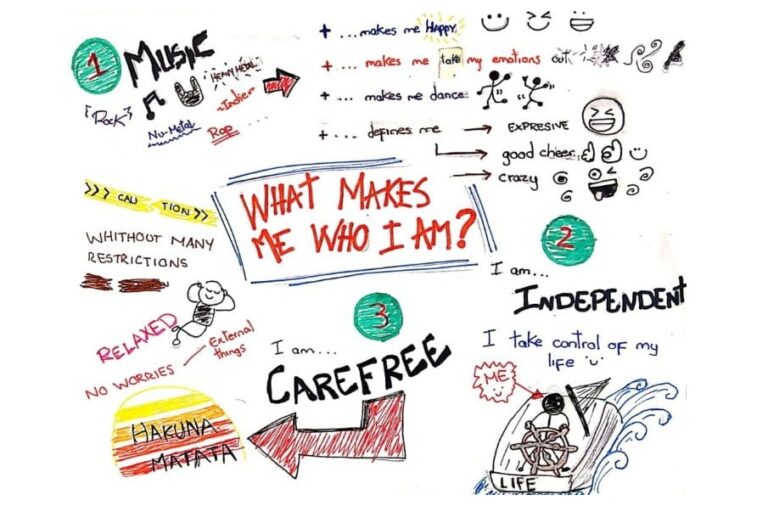 WHAT MAKES
ME WHO I AM?
1 MUSIC
"ROCK"
NU-METAL
HEAVY METAL
~Indie~
Rap...
+ ...makes me HAPPY
+ ... makes me take my emotions out
+ ... makes me dance
+ ... defines me → EXPRESIVE
→ good cheer
→ crazy
2
I am...
INDEPENDENT
I take control of my
life
ME
LIFE
3
I am...
CAREFREE
>>> CAU
TION >>
WHITHOUT MANY
RESTRICTIONS
RELAXED
NO WORRIES
External
things
HAKUNA
MATATA